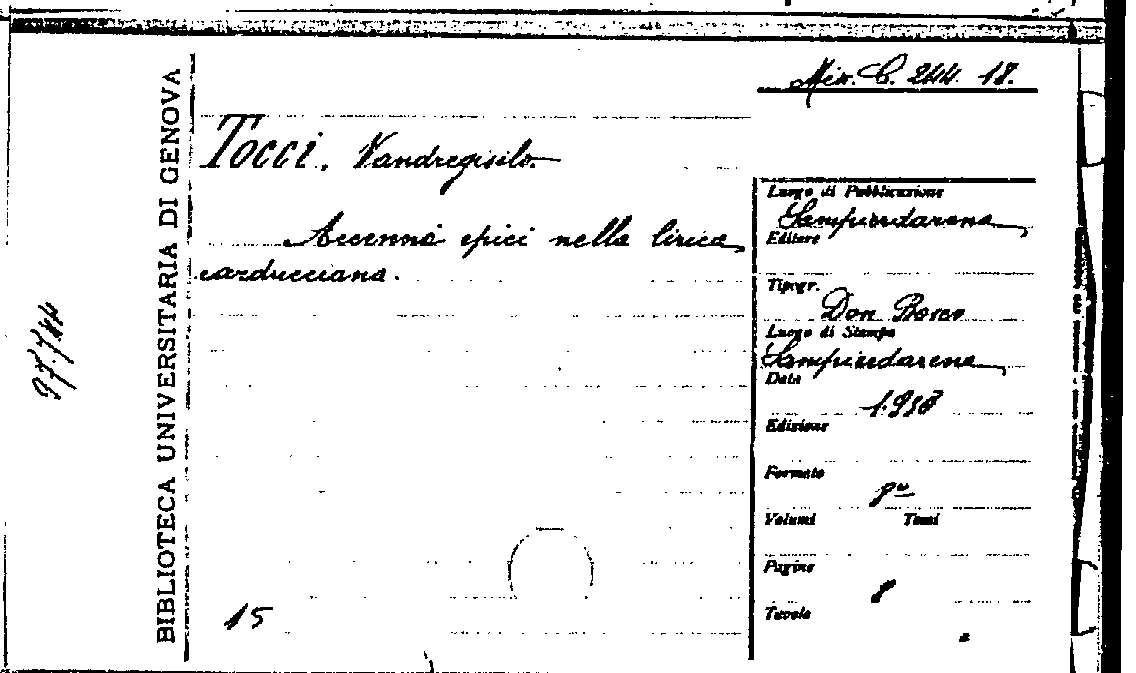 Mis. C. 244. 18.
BIBLIOTECA UNIVERSITARIA DI GENOVA
Tocci. Vandregisilo
Accenni epici nella lirica
carducciana.
15
Luogo di Pubblicazione
Sampierdarena
Editore
Tipogr.
Don Bosco
Luogo di Stampa
Sampierdarena
Data
Edizione
Formato
8º
Volumi Tomi
Pagine
8
Tavole